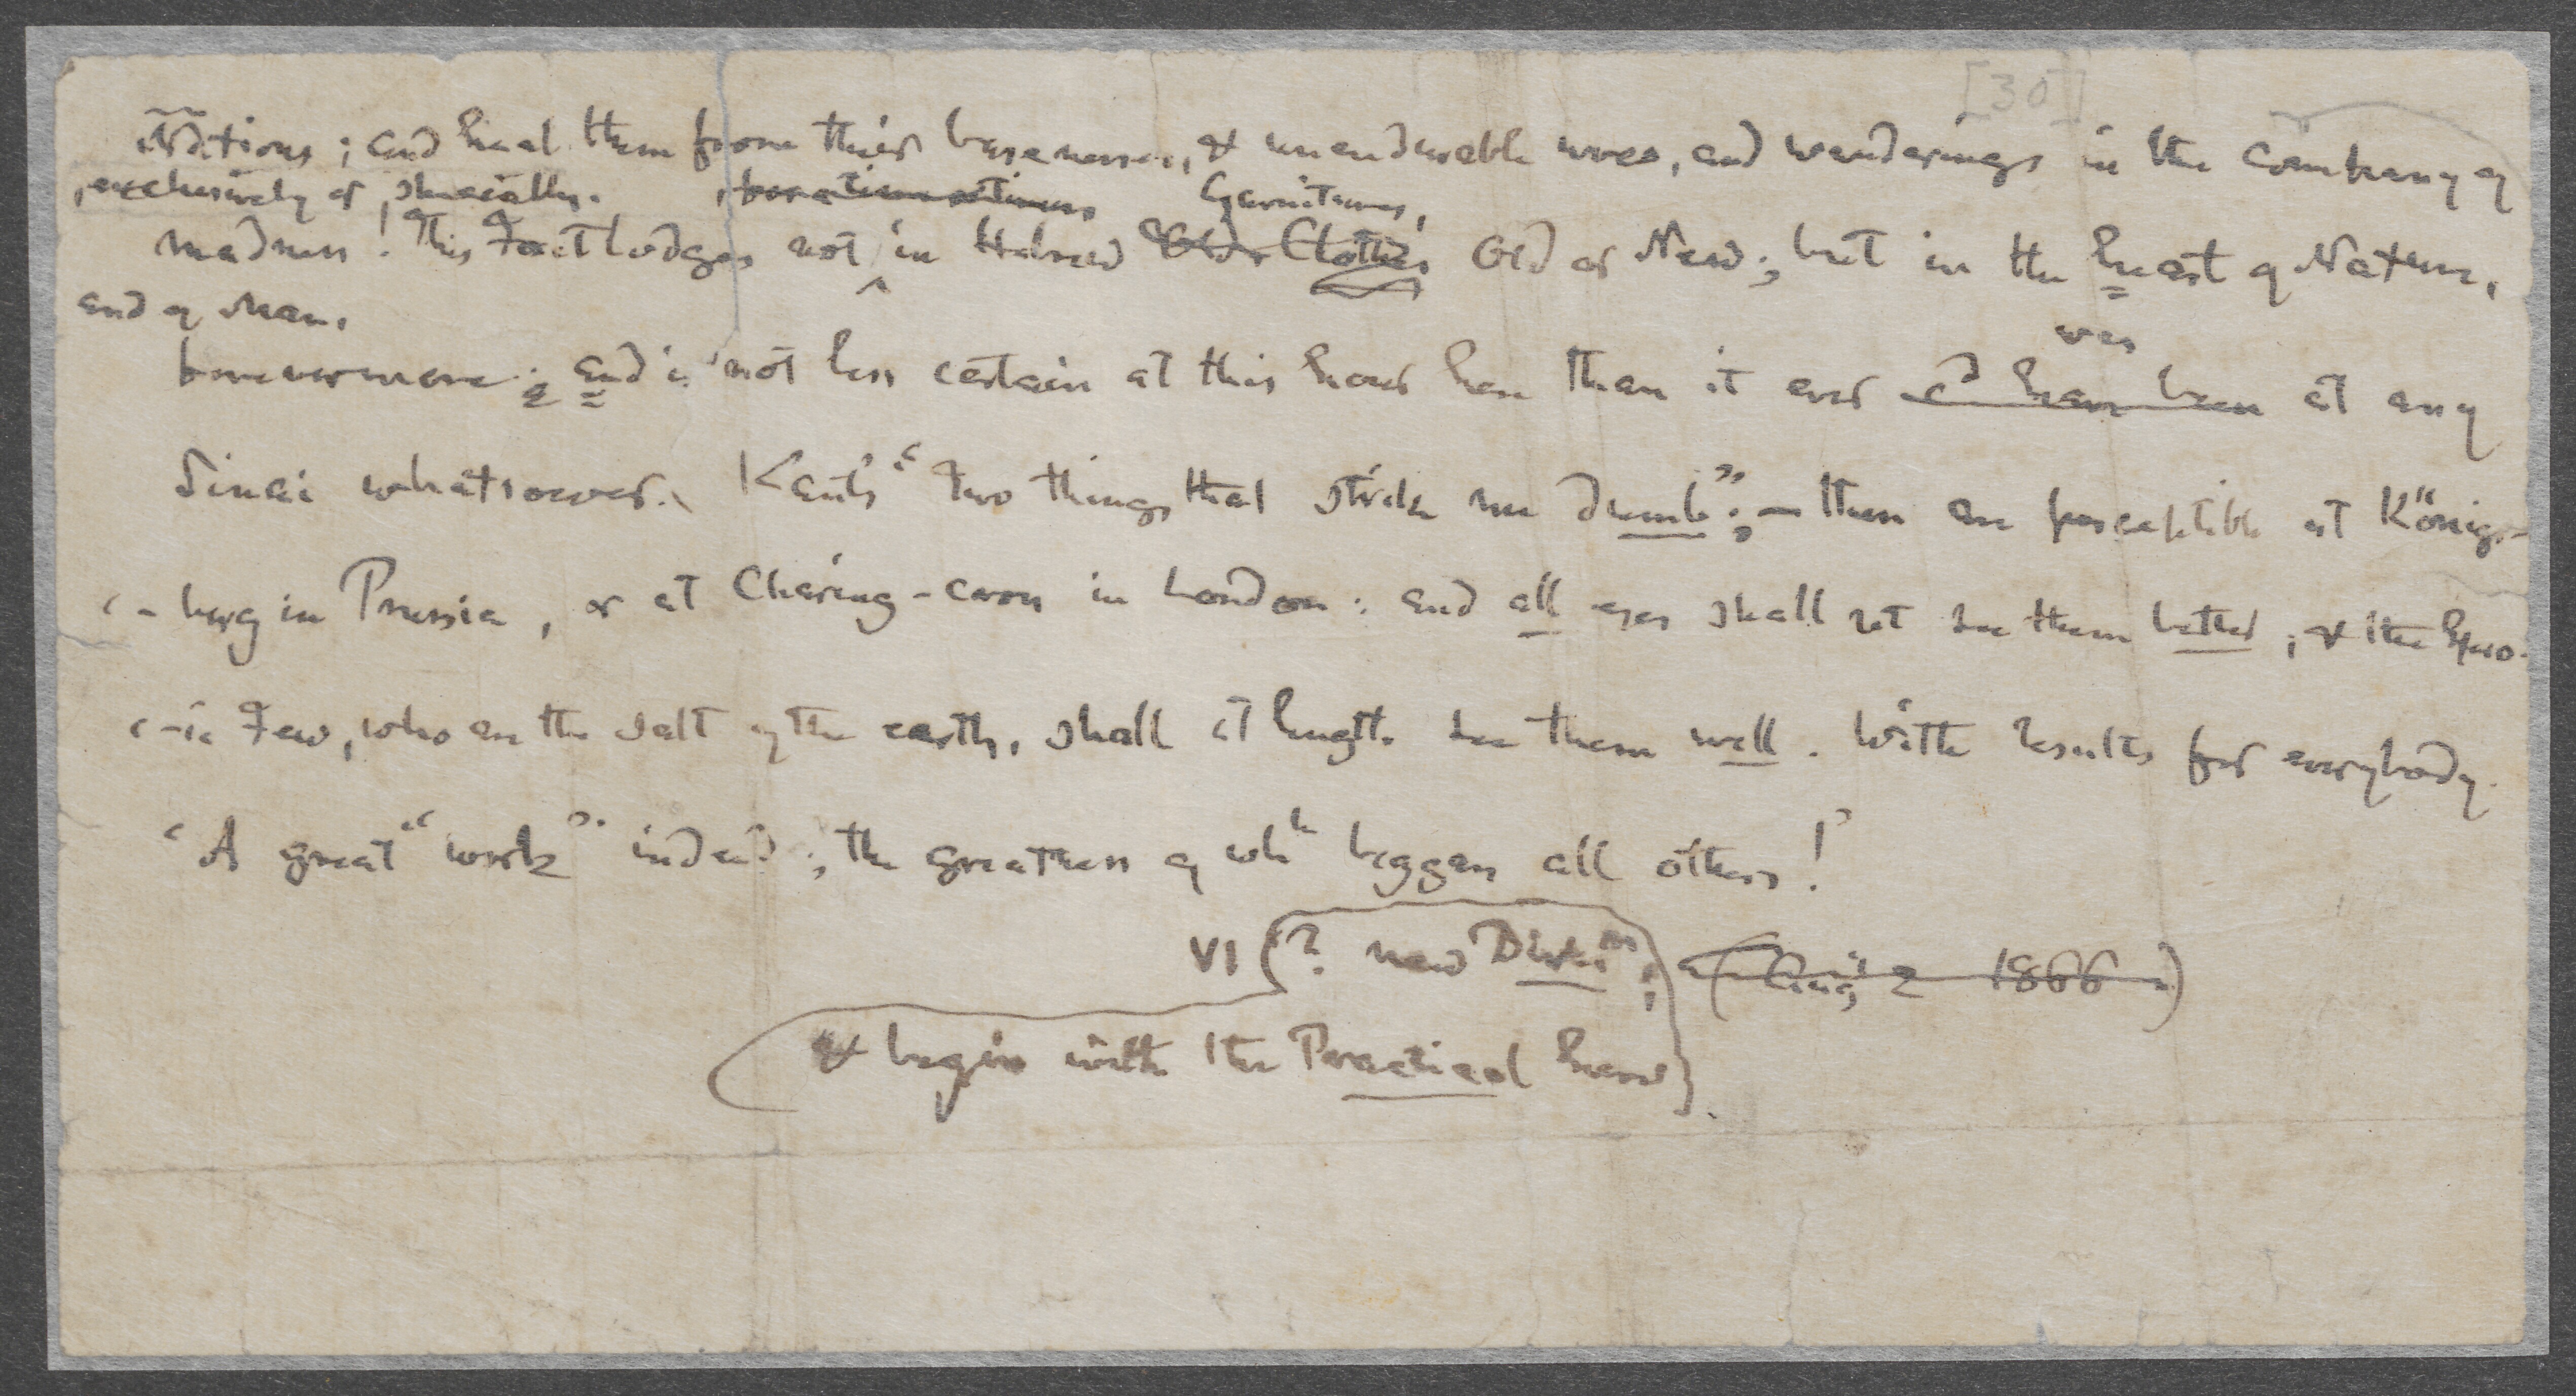 [30]
Nations; and heal them from their basenesses, & unendurable woes, and wanderings in the company of
, exclusively or specially. Garnitures,
madness! This Fact lodges not in Hebrew Old Clothes Old or New; but in the heart of Nature,
and of Man,
forevermore; and is not less certain at this hour here than it ever cd have been was at any
Sinai whatsoever. Kant's "two things that strike me dumb"; — these are perceptible at Königs-
-berg in Prussia, or at Charing-cross in London: and all eyes shall yet see them better; & the hero-
-ic Few, who are the salt of the earth, shall at length see them well. With results for everybody.
'A great "work" indeed; the greatness of whh beggars all others!'
VI (? new Divisn; (Aug 2 1866)
& begin with the Practical hero)